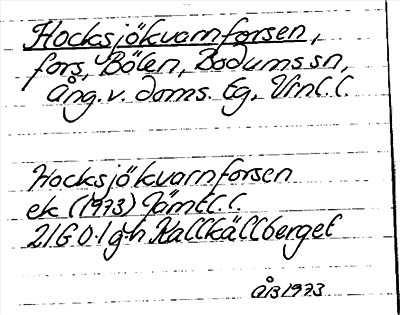 Hocksjökvarnforsen,
fors, Bölen, Bodums sn,
Ång. v. doms. tg, Vnl. l.
Hocksjökvarnforsen
ek (1973) Jämtl. l.
21G 0-1 g-h Kallkällberget
ÅB 1973